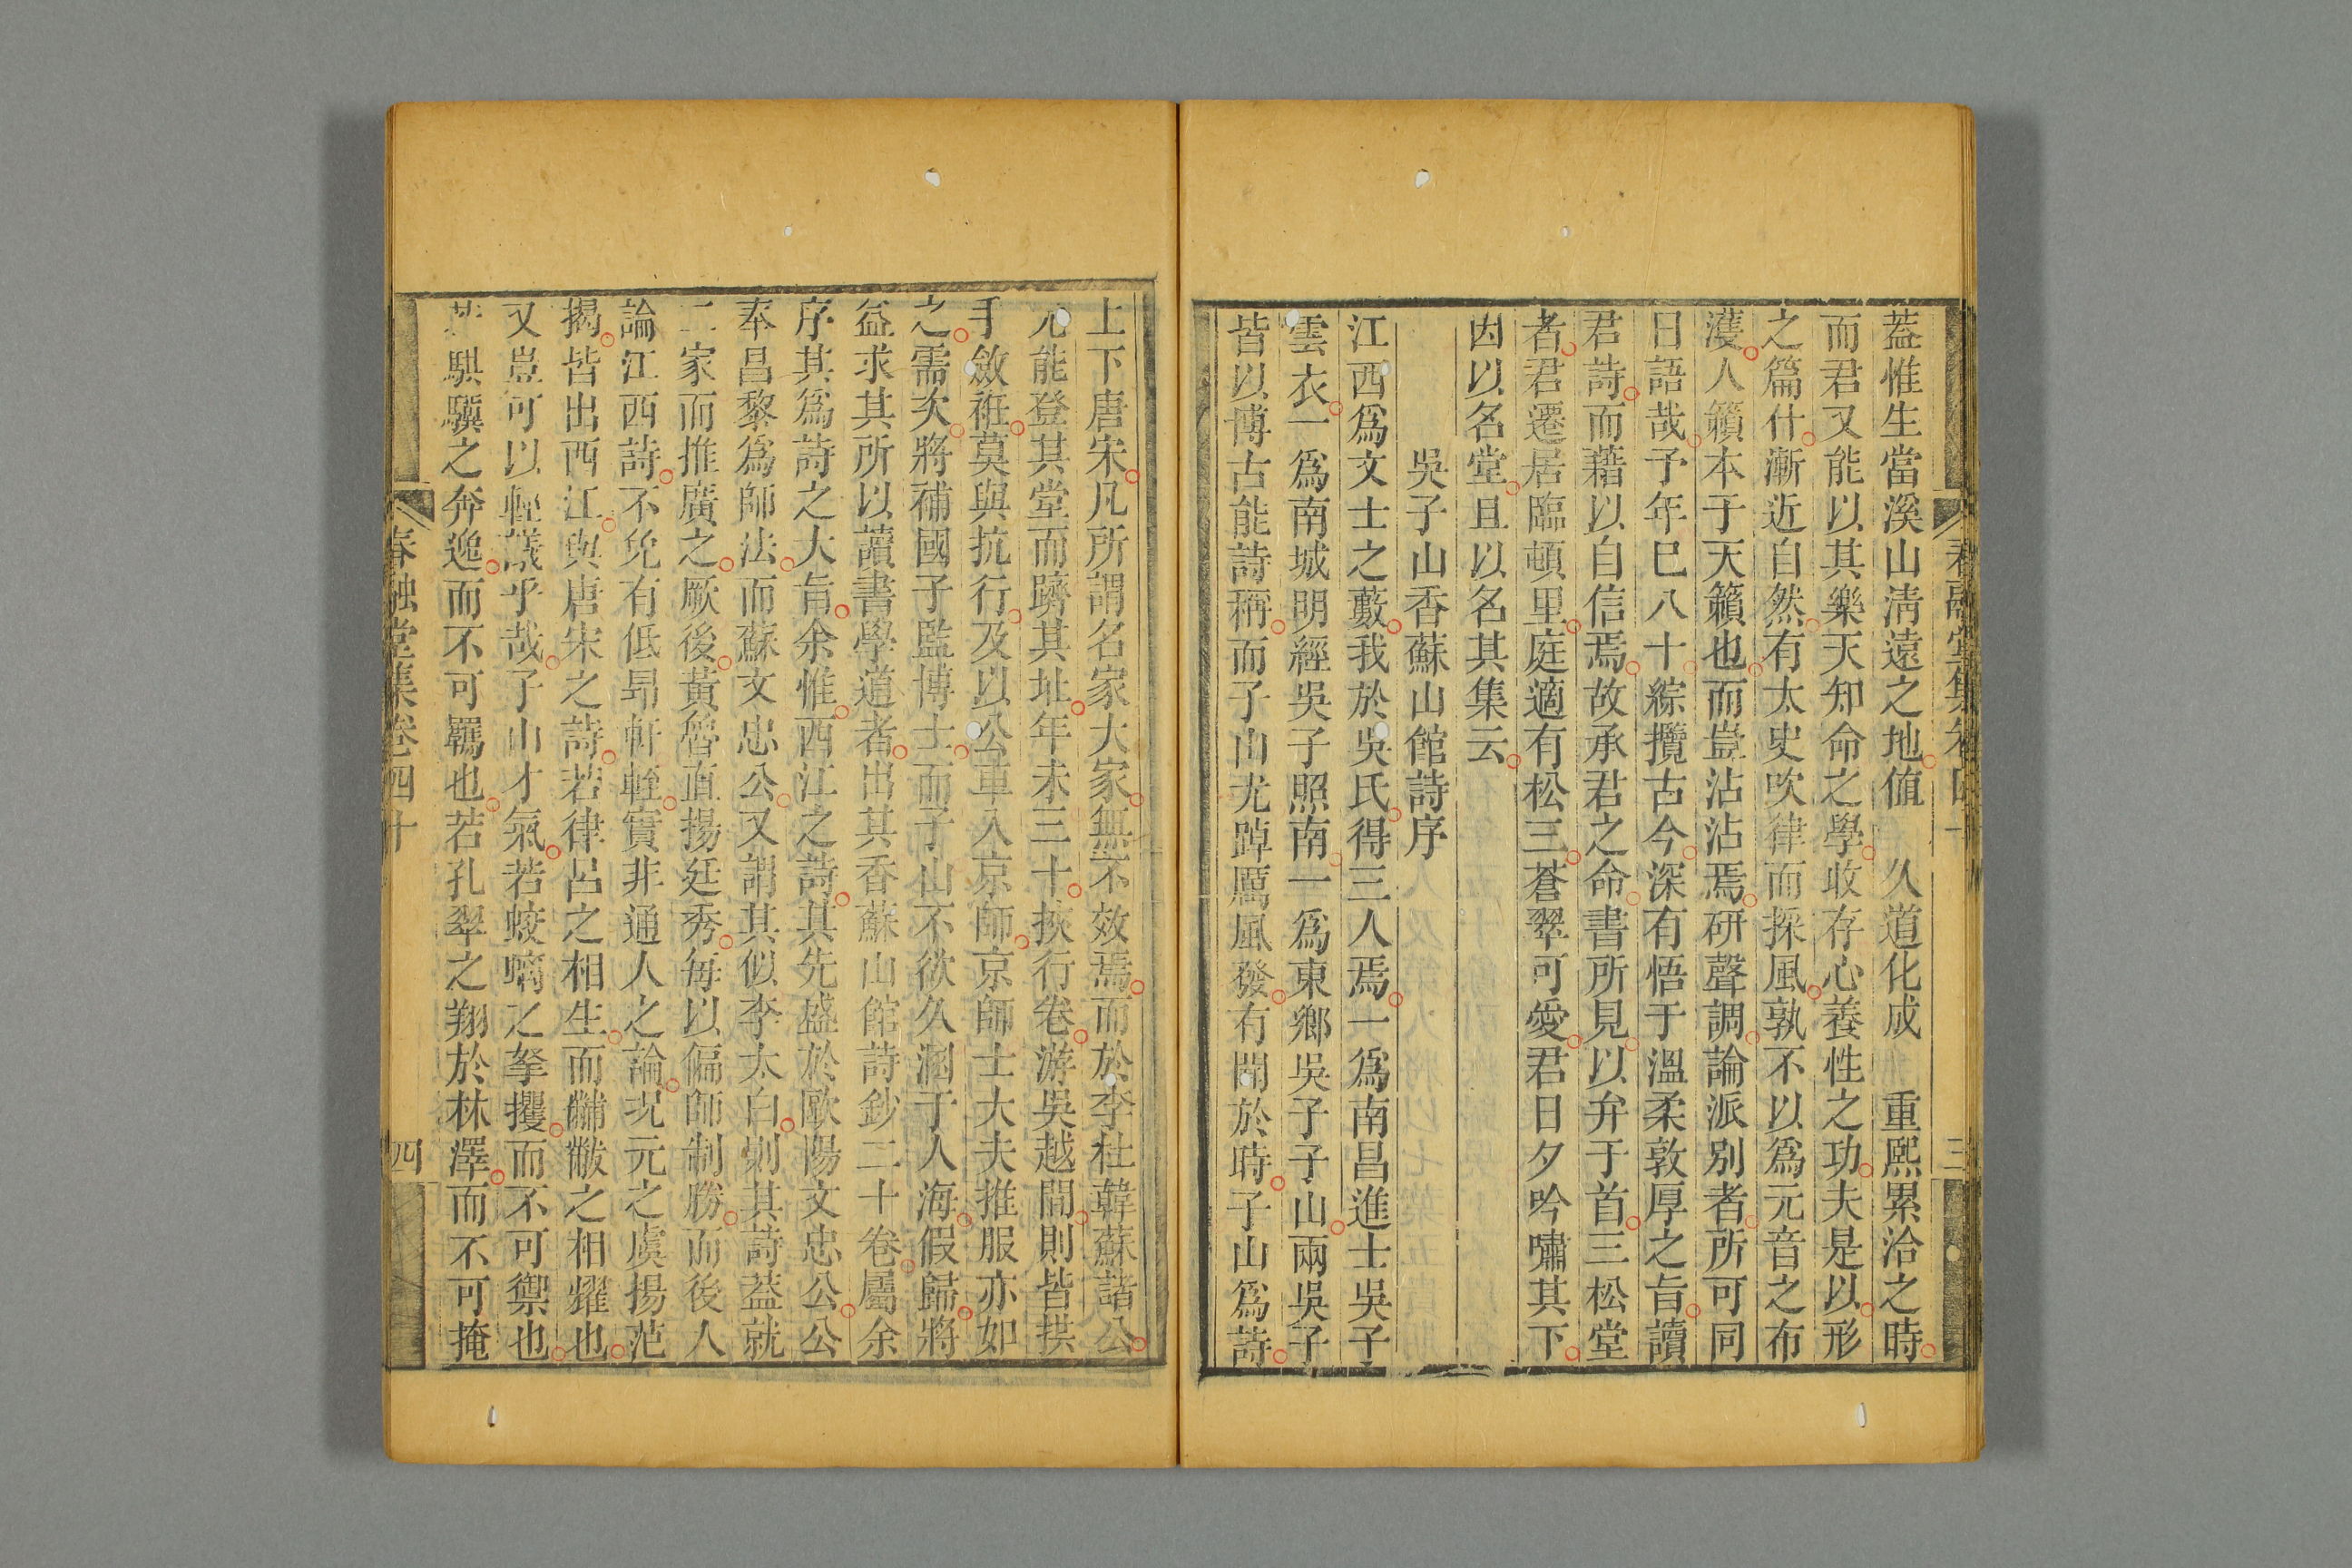 蓋惟生當溪山淸遠之地值 久道化成 重熙累洽之時
而君又能以其樂天知命之學收存心養性之功夫是以形
之篇什漸近自然有太史吹律而採風孰不以爲元音之布
濩人籟本于天籟也而豈沾沾焉研聲調論派別者所可同
日語哉予年巳八十綜攬古今深有悟于溫柔敦厚之旨讀
君詩而藉以自信焉故承君之命書所見以弁于首三松堂
者君遷居臨頓里庭適有松三蒼翠可愛君日夕吟嘯其下
因以名堂且以名其集云
吳子山香蘇山館詩序
江西爲文士之藪我於吳氏得三人焉一爲南昌進士吳子
雲衣一爲南城明經吳子照南一爲東鄉吳子子山兩吳子
皆以博古能詩稱而子山尤踔厲風發有聞於時子山爲詩
春融堂集卷四十
三
上下唐宋凡所謂名家大家無不效焉而於李杜韓蘇諸公
尤能登其堂而躋其址年未三十挾行卷游吳越閒則皆拱
手斂袵莫與抗行及以公車入京師京師士大夫推服亦如
之需次將補國子監博士而子山不欲久溷于人海假歸將
益求其所以讀書學道者出其香蘇山館詩鈔二十卷屬余
序其爲詩之大旨余惟西江之詩其先盛於歐陽文忠公公
奉昌黎爲師法而蘇文忠公又謂其似李太白則其詩蓋就
二家而推廣之厥後黃魯直揚廷秀每以偏師制勝而後人
論江西詩不免有低昻軒輊實非通人之論況元之虞揚范
揭皆出西江與唐宋之詩若律呂之相生而黼黻之相燿也
又豈可以輕議乎哉子山才氣若蛟螭之拏攫而不可禦也
若騏驥之奔逸而不可羈也若孔翠之翔於林澤而不可掩
春融堂集卷四十
四